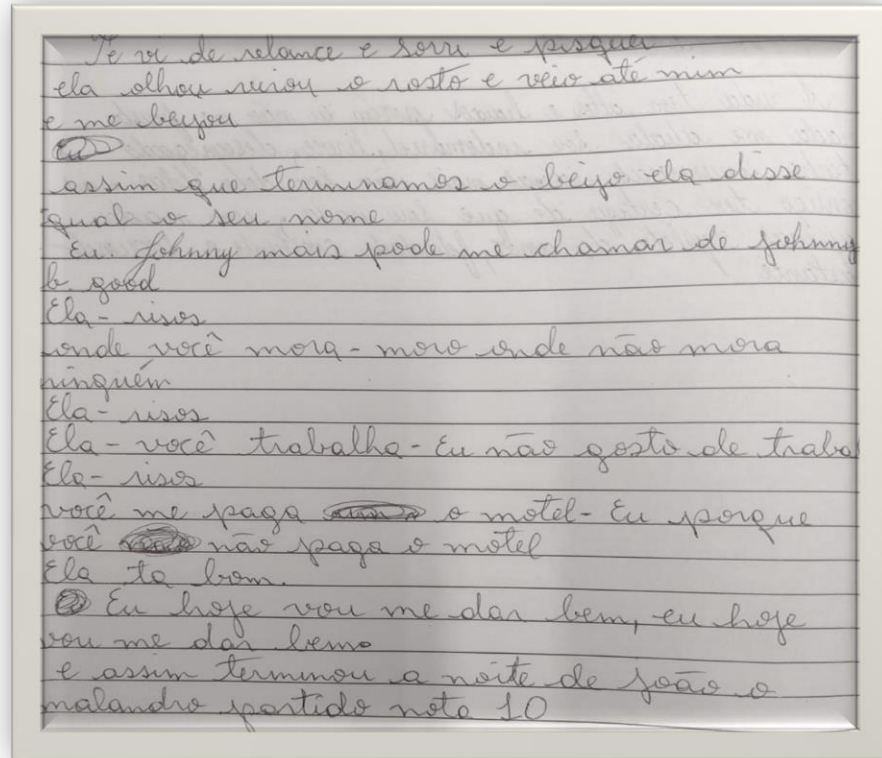 Te vi de relance e sorri e pisquei
ela olhou virou o rosto e veio até mim
e me beijou
assim que terminamos o beijo ela disse
qual o seu nome
Eu. Johnny mais pode me chamar de Johnny
b. good
Ela - risos
onde você mora - moro onde não mora
ninguém
Ela - risos
Ela - você trabalha - Eu não gosto de traba
Ela - risos
você me paga o motel - Eu porque
você não paga o motel
Ela ta bom.
Eu hoje vou me dar bem, eu hoje
vou me dar bem.
e assim terminou a noite de joão o
malandro partido nota 10